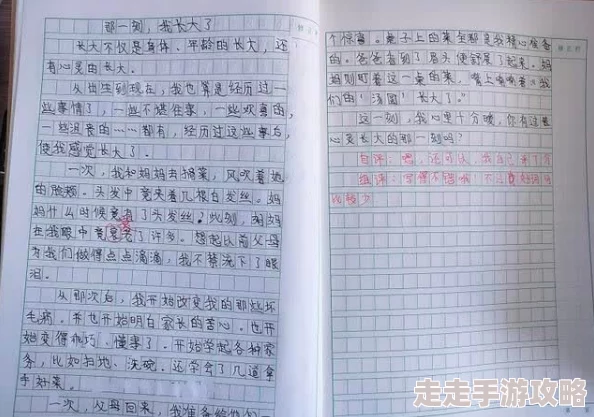 那一刻，我长大了
长大不仅是身体、年龄的长大，还
有心灵的长大。
从出生到现在，我也算是经历过一
些事情了，一些不堪往事，一些欢喜的，
一些沮丧的……都有，经历过这些事后，
使我感觉长大了。
一次，我和妈妈去摘菜，风吹着她
的脸颊。头发中竟夹着几根白发丝。妈
妈什么时候竟有了头发丝？此刻，妈妈
在我眼中竟老了许多。想起以前父母
为我们做得点点滴滴，我不禁流下了眼
泪。
从那次后，我开始改变我的那些坏
毛病。并也开始明白家长的苦心。也开
始变得乖巧、懂事了。开始学起各种家
务，比如扫地、洗碗。还学会了几道拿
手好菜。
一次，父母回来，我准备给他们一
个惊喜。桌子上的菜全都是我精心准备
的。爸爸看到了眉头便舒展了起来。妈
妈则盯着这一桌的菜，嘴上喃喃着"我
们的'汤圆'长大了。"
这一刻，我心里十分暖，你有这要
心灵长大的那一刻吗？
自评：嗯，还可以，我自己来了个
组评：写得不错哦！不过好词用
比较少
走走手游攻略